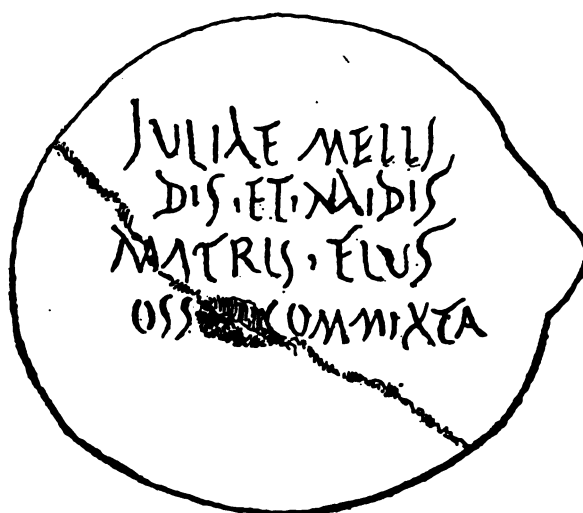 JULIAE MELLI
DIS·ET·NAIDIS
MATRIS·EIUS
OSS COMMIXTA